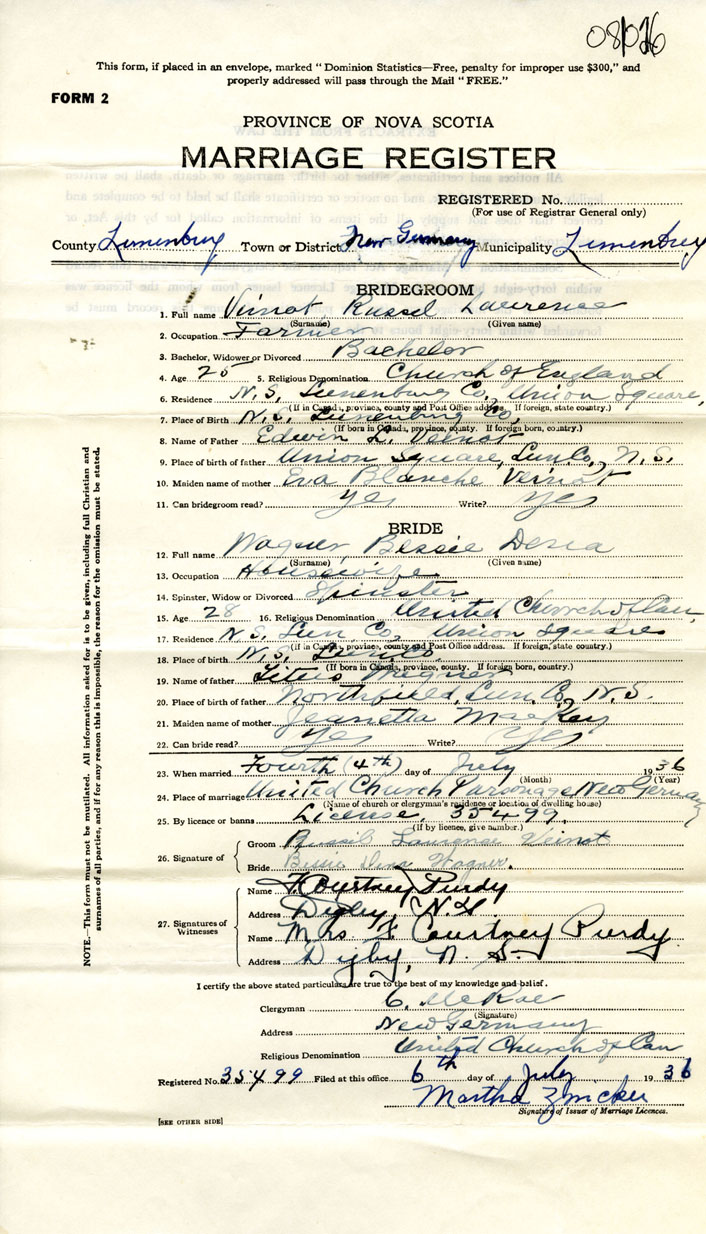 This form, if placed in an envelope, marked “ Dominion Statistics—Free, penalty for improper use $300,” and
properly addressed will pass through the Mail “ FREE.”
FORM 2
PROVINCE OF NOVA SCOTIA
MARRIAGE REGISTER
REGISTERED No.
(For use of Registrar General only)
County Lunenburg Town or District New Germany Municipality Lunenburg
BRIDEGROOM
1. Full name Veinot, Russel Lawrence
(Surname) (Given name)
2. Occupation Farmer
3. Bachelor, Widower or Divorced Bachelor
4. Age 25 5. Religious Denomination Church of England
6. Residence N. S. Lunenburg Co., Union Square,
(If in Canada, province, county and Post Office address. If foreign, state country.)
7. Place of Birth N. S. Lunenburg Co,
(If born in Canada, province, county. If foreign born, country.)
8. Name of Father Edwin L. Veinot
9. Place of birth of father Union Square, Lun. Co, N. S.
10. Maiden name of mother Eva Blanche Veinot
11. Can bridegroom read? Yes Write? Yes
BRIDE
12. Full name Wagner, Bessie
(Surname) (Given name)
13. Occupation Housewife
14. Spinster, Widow or Divorced Spinster
15. Age 28 16. Religious Denomination United Church of Can.
17. Residence N. S. Lun. Co, Union Square
(If in Canada, province, county and Post Office address. If foreign, state country.)
18. Place of birth N. S. Lun Co.
(If born in Canada, province, county. If foreign born, country.)
19. Name of father Titus Wagner
20. Place of birth of father Northfield, Lun. Co, N. S.
21. Maiden name of mother Jeanetta MacKay
22. Can bride read? Yes Write? Yes
23. When married Fourth (4th) day of July 1936
(Month) (Year)
24. Place of marriage United Church Parsonage New Germany
(Name of church or clergyman's residence or location of dwelling house)
25. By licence or banns License, 35499
(If by licence, give number.)
26. Signature of
Groom Russell Lawrence Veinot
Bride Bessie Wagner.
27. Signatures of Witnesses
Name F Courtney Purdy
Address Digby, N.S
Name Mrs. F Courtney Purdy
Address Digby, N. S.
I certify the above stated particulars are true to the best of my knowledge and belief.
Clergyman C. McRae
(Signature)
Address New Germany
Religious Denomination United Church of Can
Registered No. 35499 Filed at this office 6th day of July 1936
Martha Zwicker
Signature of Issuer of Marriage Licences.
[SEE OTHER SIDE]
NOTE.—This form must not be mutilated. All information asked for is to be given, including full Christian and
surnames of all parties, and if for any reason this is impossible, the reason for the omission must be stated.